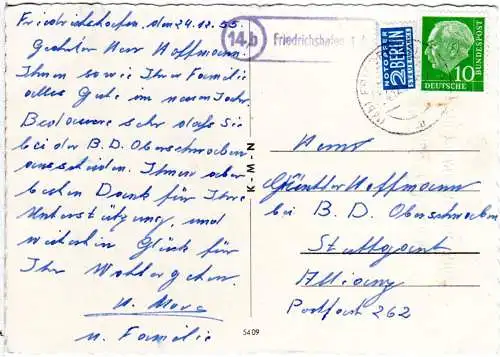 Friedrichshafen, den 24.12.55
Geehrter Herr Hoffmann,
Ihnen sowie Ihrer Familie
alles Gute im neuen Jahr.
Bedaure sehr daß Sie
bei der B. D. Oberschwaben
ausscheiden. Ihnen aber
besten Dank für Ihre
Unterstützung, und
weiterhin Glück für
Ihr Wohlergehen.
u. Familie
14b
Friedrichshafen
NOTOPFER
2 BERLIN
STEUERMARKE
10
DEUTSCHE
BUNDESPOST
K-M-N
5409
Herrn
Günther Hoffmann
bei B. D. Oberschwaben
Stuttgart
Allianz
Postfach 262